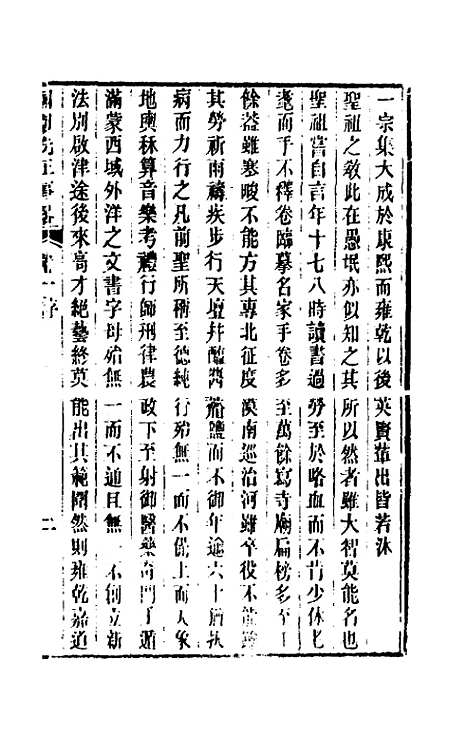 一宗集大成於康熙而雍乾以後英賢輩出皆若沐
聖祖之教此在愚氓亦似知之其所以然者雖大智莫能名也
聖祖嘗自言年十七八時讀書過勞至於咯血而不肯少休老
耄而手不釋卷臨摹名家手卷多至萬餘寫寺廟扁榜多至千
餘蓋雖寒畯不能方其專北征度漠南巡治河雖卒役不能踰
其勞祈雨禱疾步行天壇并醢醬虀鹽而不御年逾六十猶扶
病而力行之凡前聖所稱至德純行殆無一而不備上而天象
地輿秝算音樂考禮行師刑律農政下至射御醫藥奇門壬遁
滿蒙西域外洋之文書字母殆無一而不通且無一不創立新
法別啟津途後來高才絕藝終莫能出其範圍然則雍乾嘉道
國朝先正事略 序 二